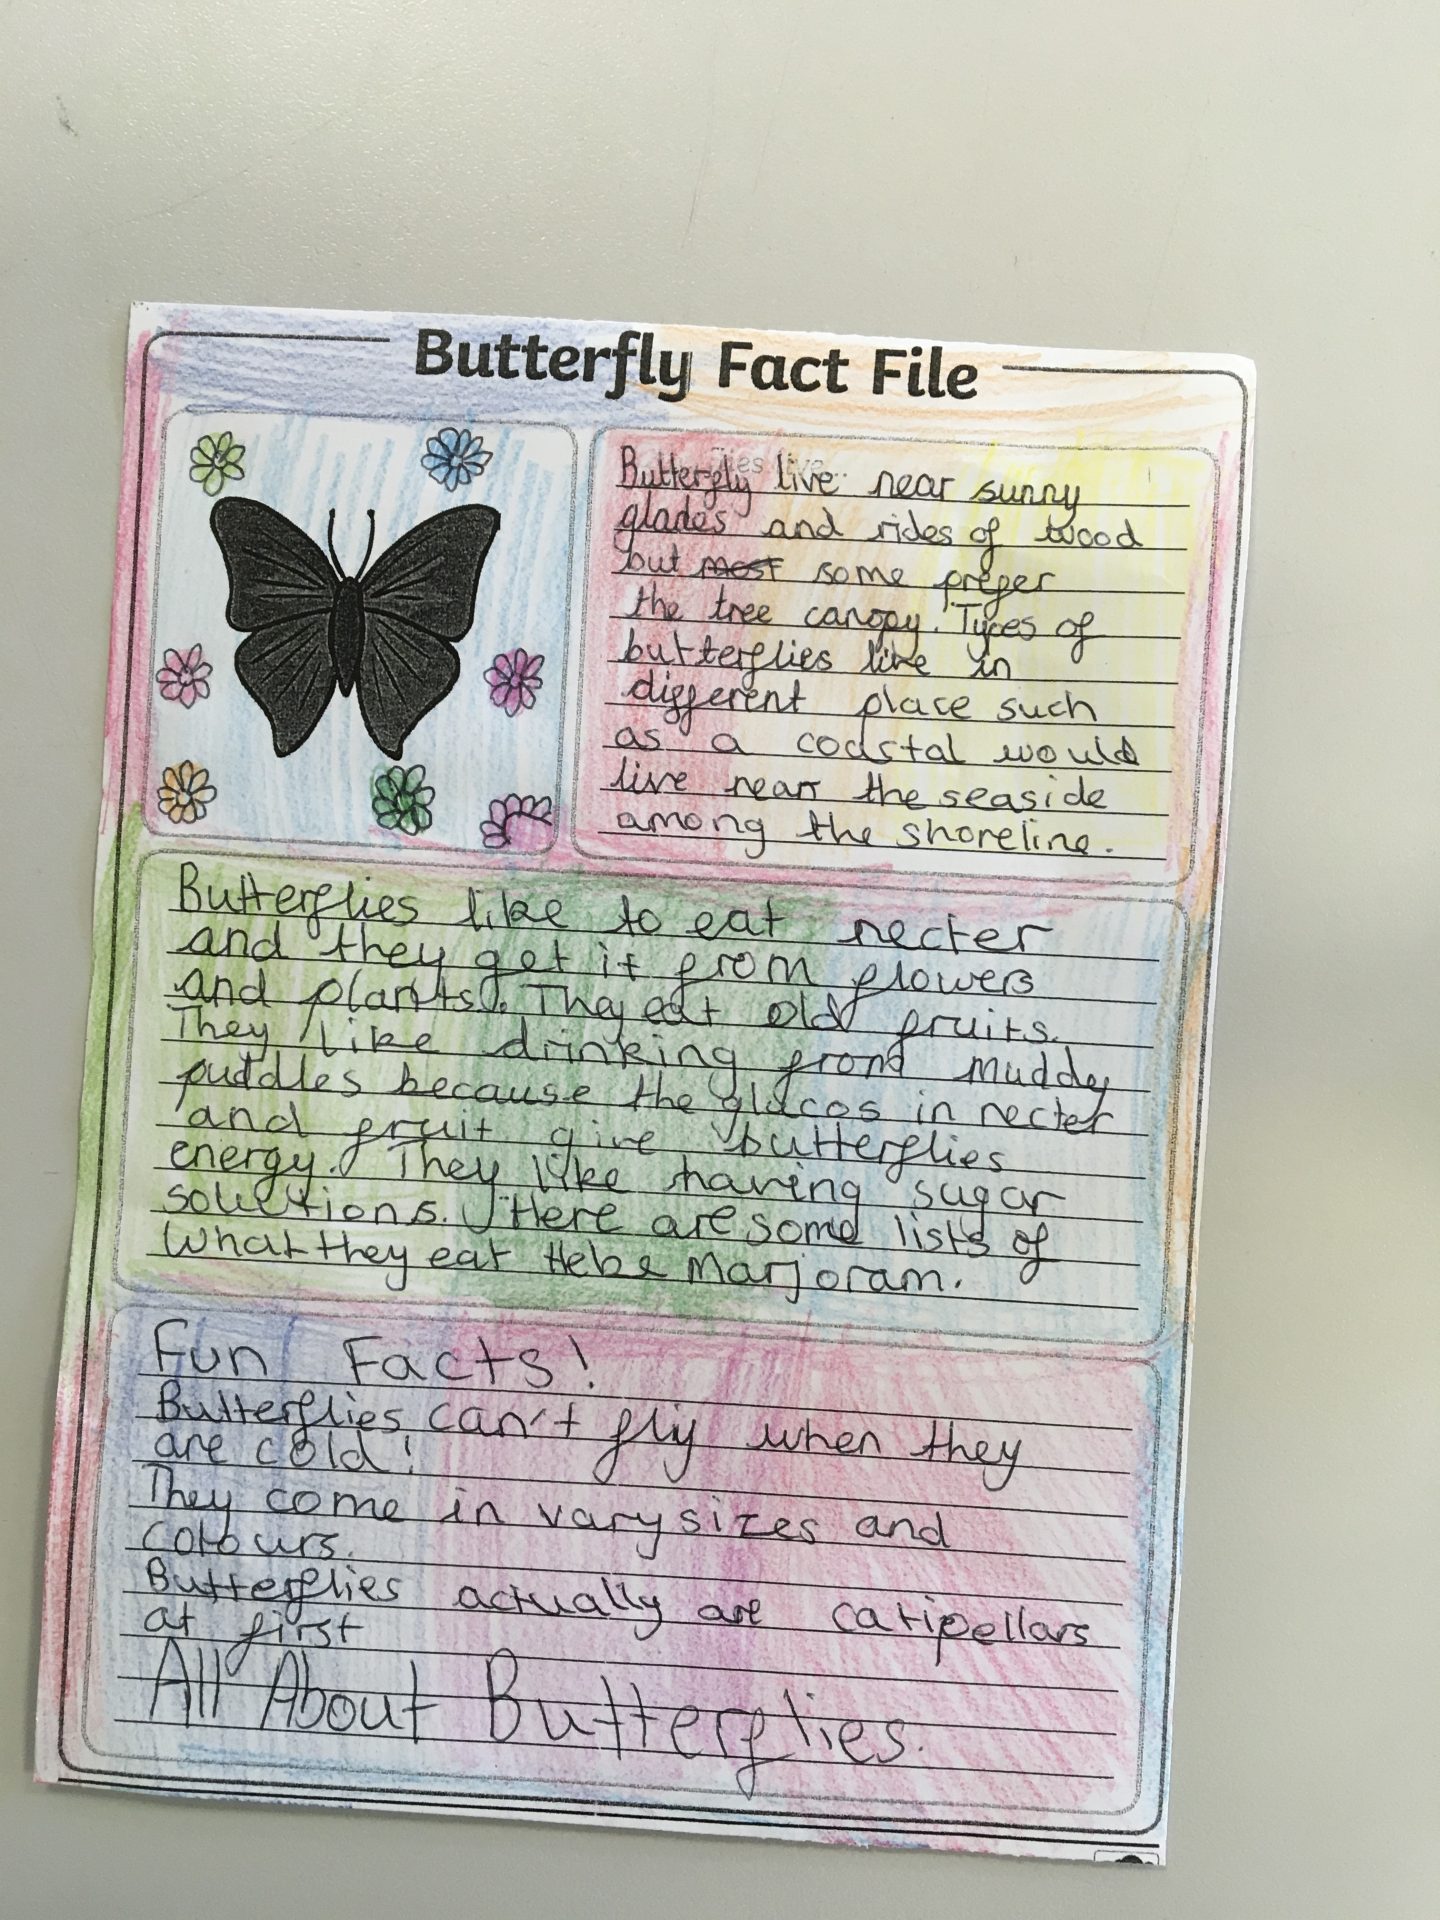 Butterfly Fact File
Butterfly live near sunny
glades and rides of wood
but most some prefer
the tree canopy. Types of
butterflies live in
different place such
as a coastal would
live near the seaside
among the shoreline.
Butterflies like to eat necter
and they get it from flowers
and plants. They eat old fruits.
They like drinking from muddy
puddles because the glucos in necter
and fruit give butterflies
energy. They like having sugar
solutions. Here are some lists of
what they eat Hebe Marjoram.
Fun Facts!
Butterflies can't fly when they
are cold!
They come in vary sizes and
colours.
Butterflies actually are catipellars
at first
All About Butterflies.